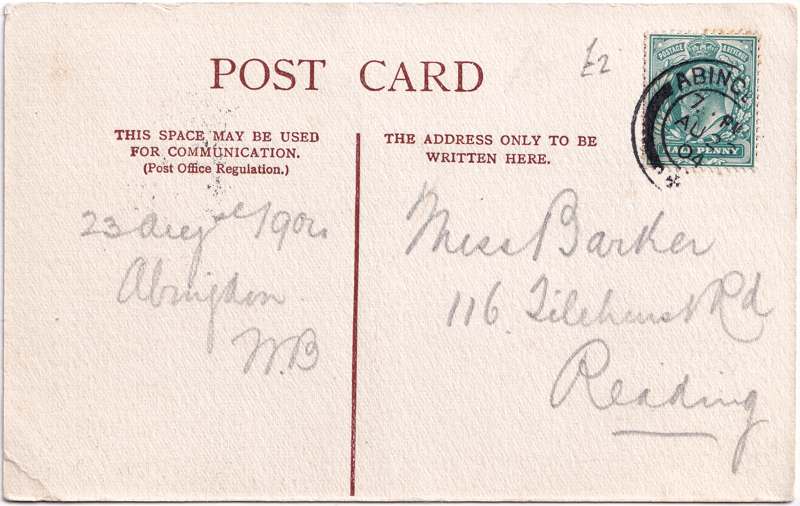 POST CARD
£2
POSTAGE & REVENUE
HALF PENNY
ABING
7 PM
AU 23
04
THIS SPACE MAY BE USED
FOR COMMUNICATION.
(Post Office Regulation.)
23 Augst 1904
Abingdon
W.B
THE ADDRESS ONLY TO BE
WRITTEN HERE.
Miss Barker
116. Tilehurst Rd
Reading